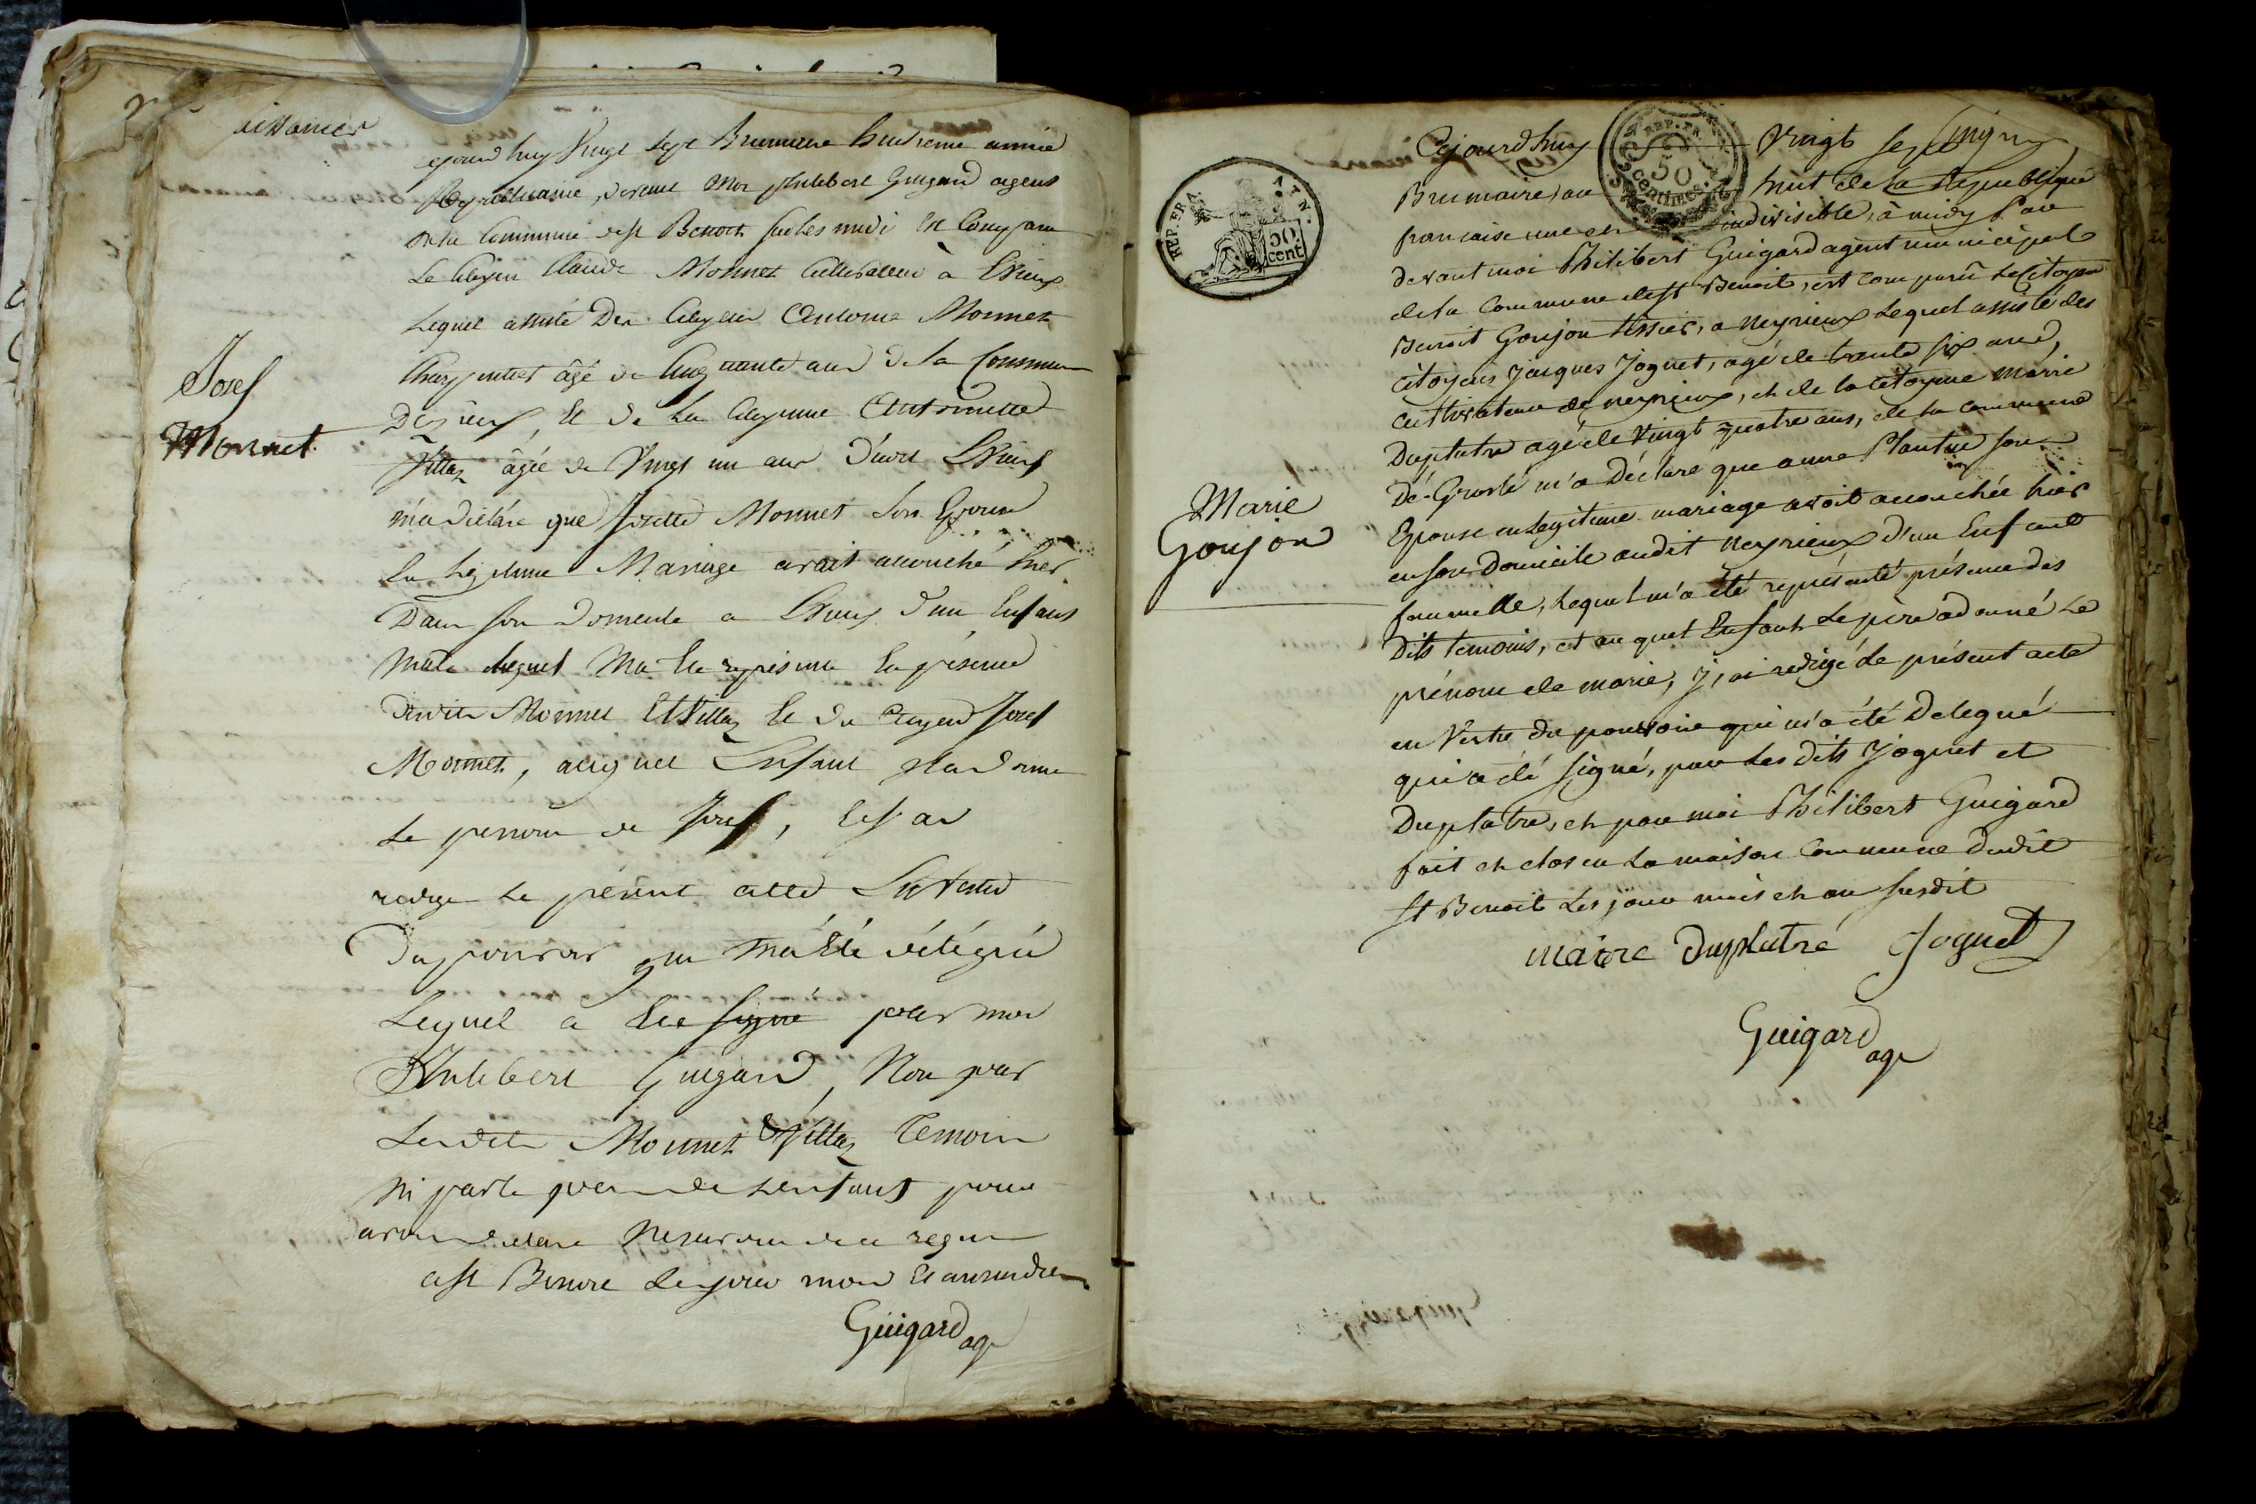 naissances
ajourd huy vingt sept Brumaire huitieme année
Republicaine, devant moi philibert Guigard agent
de la Commune de st Benoit sur les midi est Comparu
Le Citoyen Claude Monnet Cultivateur à
Lequel assisté Du Citoyen Antoine Monnet
Charpentier âgé de Cinquante ans de la Commune
et de La Citoyenne Antoinette
Villaz âgée de Vingt un ans
m'a declaré que Josette Monnet son Epouse
En Legitime Mariage avait accouché hier
Dans son Domicile a d'un Enfant
Male lequel Ma Ete En présence
Monnet et Villaz Et du Citoyen Josef
Monnet, auquel Enfant
Le prenom de Josef,
redigé Le présent acte En vertu
Du pouvoir qui m'a Eté délégué
Lequel a Ete signé par moi
Philibert Guigard, Non par
Lesdits Monnet & Villaz Temoin
Ni par le pere de L'enfant pour
avoir declaré
a st Benoit Le jour mois Et an susdits
Guigard ag
Josef
Monnet
Cejourd'huy vingt sept
Brumaire, an huit de la Republique
francaise une et indivisible, à midy
devant moi Philibert Guigard agent municipal
de la Commune de st Benoit, est comparû Le Citoyen
Benoit Goujon tissier, a Neyrieux Lequel assisté des
citoyens Jacques Joguet, agé de trente six ans,
cultivateur de Neyrieux, et de la citoyene Marie
Duplatre agé de vingt quatre ans, de la commune
De Groslé m'a Déclaré que anne Plantin son
Epouse en Legitime mariage avoit accouchée hier
en son Domicile audit Neyrieux d'un Enfant
foumelle, Lequel m'a été représenté présence des
Dits temoins, et au quel Enfant Le père a donné Le
prénom de marie, j'ai redigé le présent acte
en Vertu du pouvoir qui m'a été Delegué
qui a été signé, par Les dits Joguet et
Duplatre, et par moi Philibert Guigard
fait et clos en La maison Commune dudit
St Benoit Les jour mois et an susdit
marie Duplatre Joguet
Guigard ag
Marie
Goujon
REP. FRA
50
cent
REP. FR
50
centimes